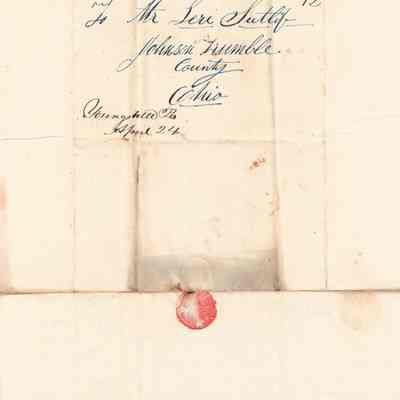 To Mr Levi Sutlif
Johnson Trumble.
County
Ohio
Youngsville Pa
April 24
12